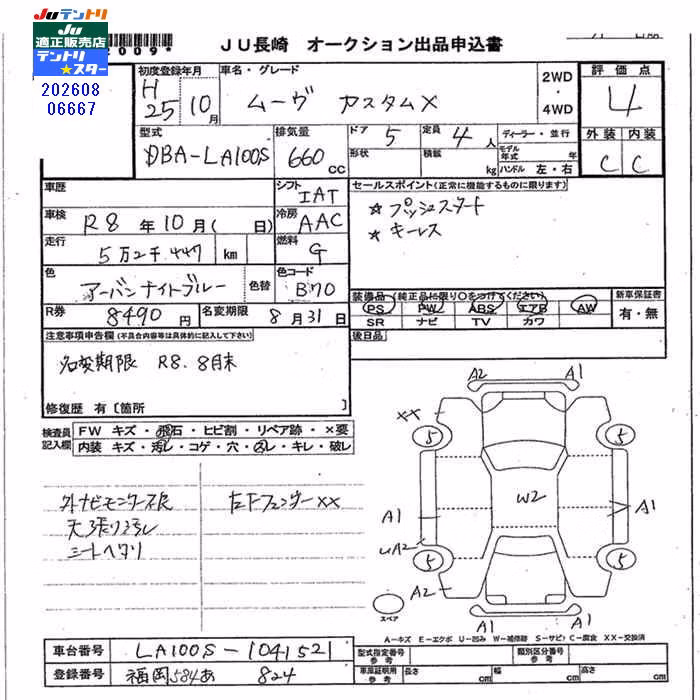 JUテントリ
JU
適正販売店
テントリ
★スター
2009*
JU長崎 オークション出品申込書
202608
06667
初度登録年月
H
25 10月
車名・グレード
ムーヴ カスタムX
2WD
・
4WD
評価点
4
型式
DBA-LA100S
排気量
660 CC
ドア 5
定員 4人
形状
積載 kg
ディーラー・並行
モデル年式 年
ハンドル 左・右
外装 内装
C C
車歴
シフト IAT
セールスポイント(正常に機能するものに限ります)
☆ プッシュスタート
☆ キーレス
車検 R8年10月( 日)
冷房 AAC
走行 5万2千447 km
燃料 G
色 アーバンナイトブルー 色替
色コード B70
装備品(純正品に限り〇をつけてください)
新車保証書
PS PW ABS エアB AW
有・無
SR ナビ TV カワ
R券 8490円
名変期限 8月31日
後日品
注意事項申告欄(不具合内容等は具体的に記入して下さい)
名変期限 R8.8月末
修復歴 有〔箇所 〕
検査員
記入欄
FW キズ・飛石・ヒビ割・リペア跡・×要
内装 キズ・汚れ・コゲ・穴・スレ・キレ・破レ
外ナビモニター不良
天張り汚れ
シートヘタリ
左Fフェンダーxx
A2 A1
xx
5 5
W2
A1 A1
UA2
5 5
A2
A1 A1
スペア
A−キズ E−エクボ U−凹み W−補修跡 S−サビ C−腐食 XX−交換済
車台番号 LA100S-1041521
登録番号 福岡584あ 824
型式指定番号
参考
類別区分番号
参考
車庫証明用
参考
長さ cm
幅 cm
高さ cm